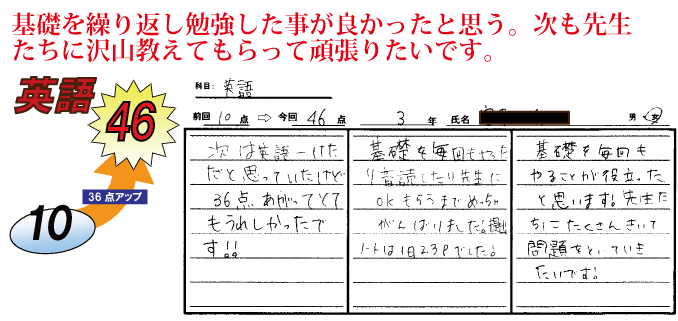 基礎を繰り返し勉強した事が良かったと思う。次も先生
たちに沢山教えてもらって頑張りたいです。
英語
46
36点アップ
10
科目: 英語
前回 10 点 ⇨ 今回 46 点 3 年 氏名 男 女
次は英語一けた
だと思っていたけど
36点あがってとて
もうれしかったで
す!!
基礎を毎回もやった
り音読したり先生に
OKもらうまでめっちゃ
がんばりました。提出
ノートは1日23Pでした。
基礎を毎回も
やることが役立った
と思います。先生た
ちにたくさんきいて
問題をといていき
たいです。